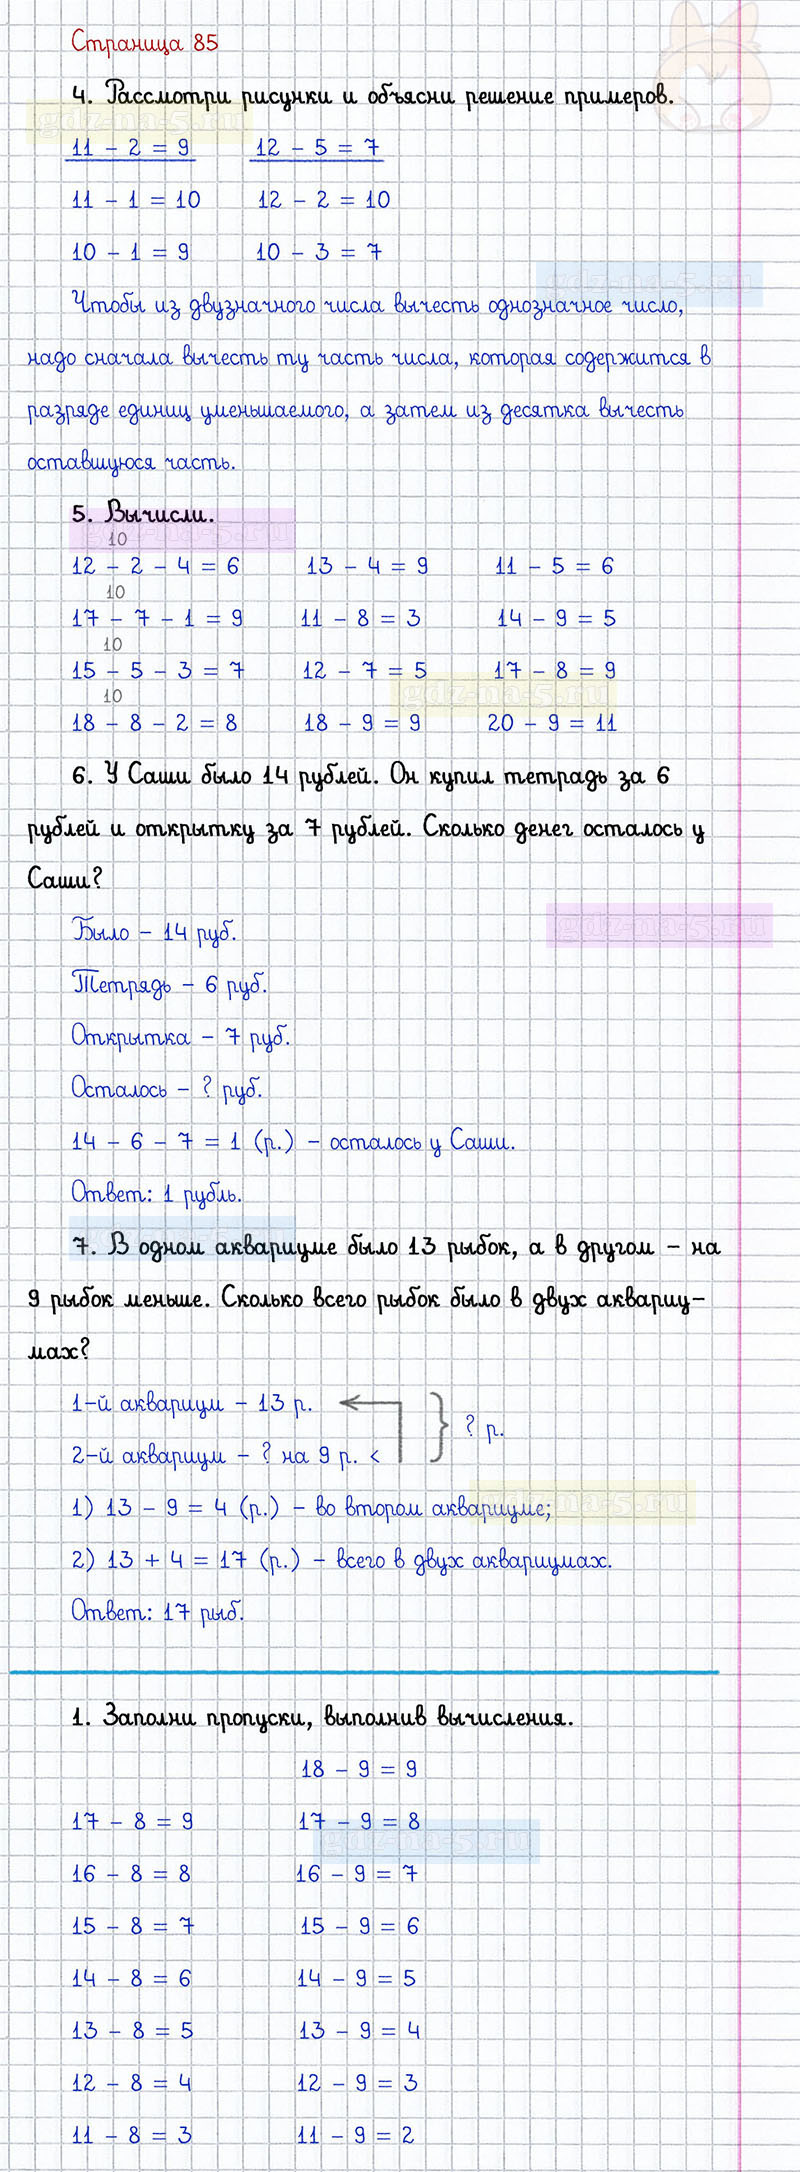 Страница 85
4. Рассмотри рисунки и объясни решение примеров.
gdz-na-5.ru
11 - 2 = 9 12 - 5 = 7
11 - 1 = 10 12 - 2 = 10
10 - 1 = 9 10 - 3 = 7
gdz-na-5.ru
Чтобы из двузначного числа вычесть однозначное число,
надо сначала вычесть ту часть числа, которая содержится в
разряде единиц уменьшаемого, а затем из десятка вычесть
оставшуюся часть.
5. Вычисли.
gdz-na-5.ru
10
12 - 2 - 4 = 6 13 - 4 = 9 11 - 5 = 6
10
17 - 7 - 1 = 9 11 - 8 = 3 14 - 9 = 5
10
15 - 5 - 3 = 7 12 - 7 = 5 17 - 8 = 9
gdz-na-5.ru
10
18 - 8 - 2 = 8 18 - 9 = 9 20 - 9 = 11
6. У Саши было 14 рублей. Он купил тетрадь за 6
рублей и открытку за 7 рублей. Сколько денег осталось у
Саши?
gdz-na-5.ru
Было - 14 руб.
Тетрадь - 6 руб.
Открытка - 7 руб.
Осталось - ? руб.
14 - 6 - 7 = 1 (р.) - осталось у Саши.
Ответ: 1 рубль.
gdz-na-5.ru
7. В одном аквариуме было 13 рыбок, а в другом - на
9 рыбок меньше. Сколько всего рыбок было в двух аквариу-
мах?
1-й аквариум - 13 р.
? р.
2-й аквариум - ? на 9 р. <
gdz-na-5.ru
1) 13 - 9 = 4 (р.) - во втором аквариуме;
2) 13 + 4 = 17 (р.) - всего в двух аквариумах.
Ответ: 17 рыб.
1. Заполни пропуски, выполнив вычисления.
18 - 9 = 9
17 - 8 = 9 17 - 9 = 8
gdz-na-5.ru
16 - 8 = 8 16 - 9 = 7
15 - 8 = 7 15 - 9 = 6
14 - 8 = 6 14 - 9 = 5
13 - 8 = 5 13 - 9 = 4
12 - 8 = 4 12 - 9 = 3
11 - 8 = 3 11 - 9 = 2